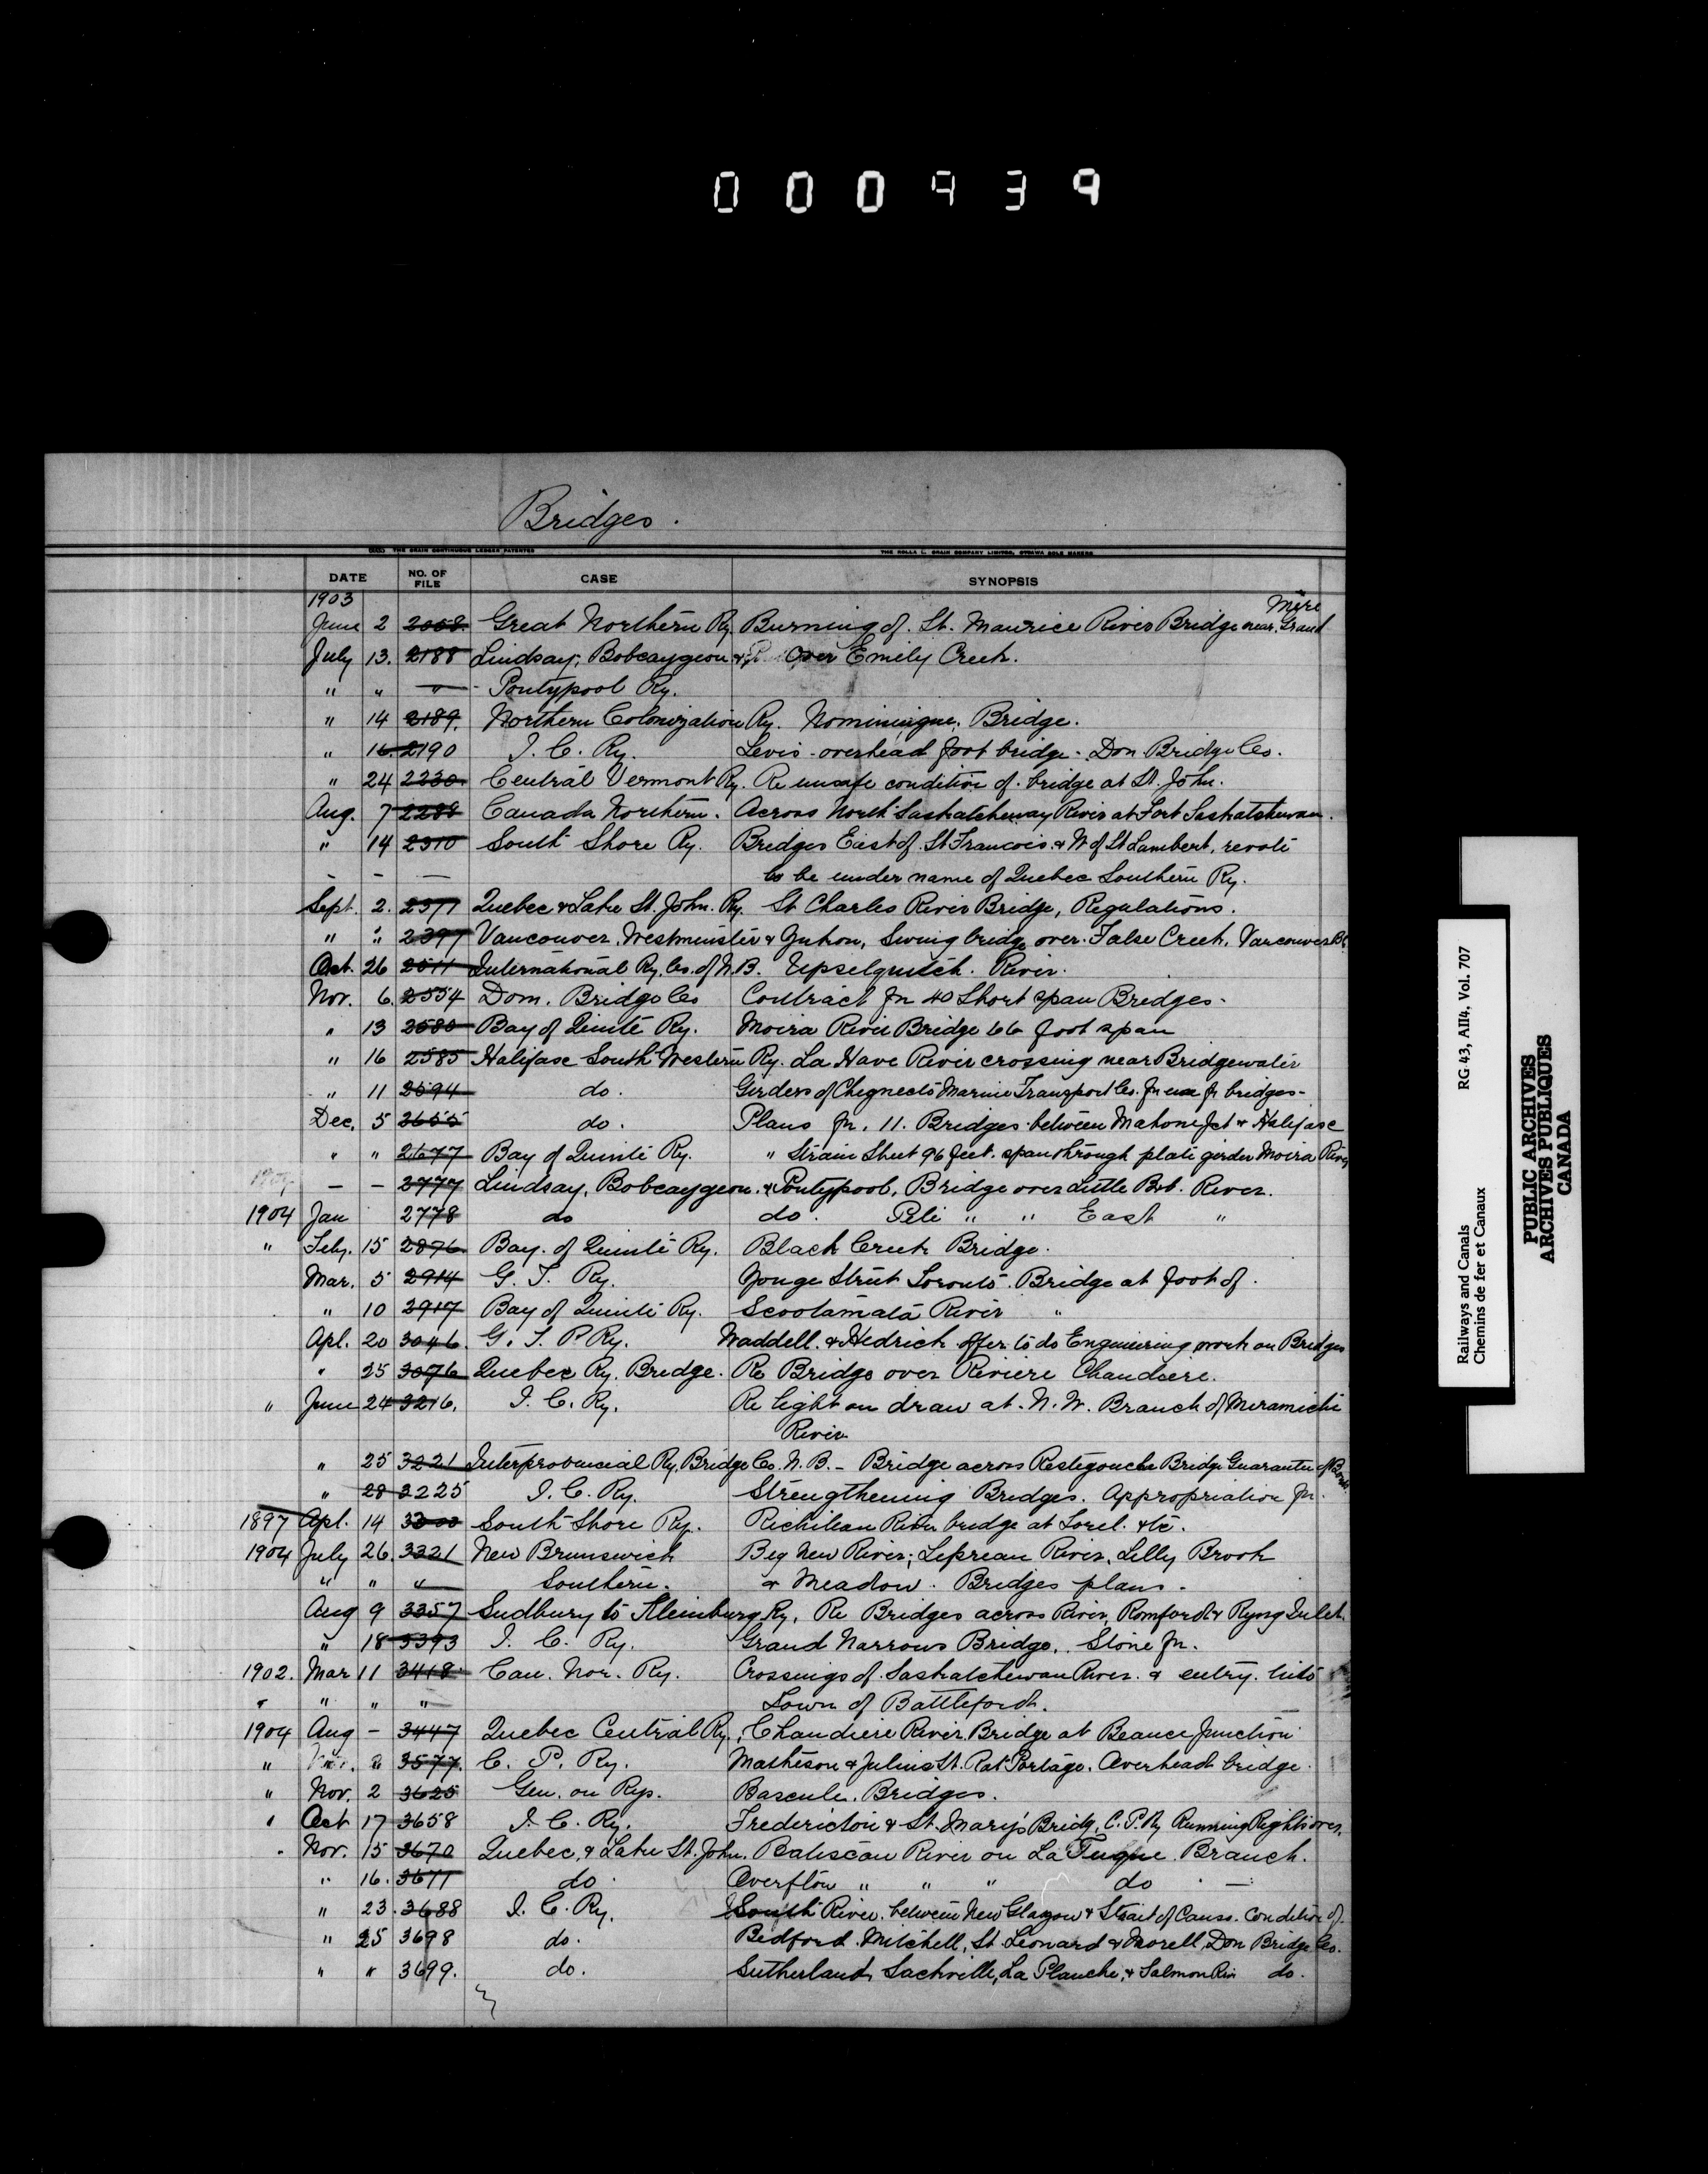 000939
Bridges.
THE CRAIN CONTINUOUS LEDGER PATENTED
THE ROLLA L. CRAIN COMPANY LIMITED, OTTAWA SOLE MAKERS
DATE NO. OF FILE CASE SYNOPSIS
1903
June 2 2068 Great Northern Ry. Burning of St. Maurice River Bridge near Grand Mere
July 13. 2188 Lindsay, Bobcaygeon & Over Emily Creek.
" " " Pontypool Ry.
" 14 2189. Northern Colonization Ry. Nominingue. Bridge.
" 16 2190 I. C. Ry. Levis - overhead foot bridge - Dom Bridge Co.
" 24 2230 Central Vermont Ry. Re unsafe condition of bridge at St. John.
Aug. 7 2288 Canada Northern. Across North Saskatcheway River at Fort Saskatchewan.
" 14 2310 South Shore Ry. Bridges East of St Francois & W of St Lambert,
- - — to be under name of Quebec Southern Ry.
Sept. 2. 2377 Quebec & Lake St. John Ry. St Charles River Bridge, Regulations.
" " 2397 Vancouver, Westminster & Yukon, Swing bridge over False Creek, Vancouver B.C.
Oct. 26 2511 International Ry. Co. of N.B. Upselquitch River.
Nov. 6. 2554 Dom. Bridge Co Contract for 40 Short span Bridges -
" 13 2580 Bay of Quinte Ry. Moira River Bridge 66 foot span
" 16 2585 Halifax South Western Ry. La Have River crossing near Bridgewater
" 11 2594 do. Girders of Chignecto Marine Transport Co. for use for bridges -
Dec. 5 2655 do. Plans for 11. Bridges between Mahone Jct & Halifax
" " 2677 Bay of Quinte Ry. " Strain Sheet 96 feet. span through plate girder Moira River
1904 — - 2777 Lindsay, Bobcaygeon & Pontypool, Bridge over Little Bob. River.
1904 Jan 2778 do do. " " East "
" Feby. 15 2876 Bay of Quinte Ry. Black Creek Bridge.
Mar. 5 2914 G. T. Ry. Yonge Street Toronto. Bridge at foot of.
" 10 2917 Bay of Quinte Ry. Scootamata River "
Apl. 20 3046. G. T. P Ry. Waddell & Hedrick offer to do Engineering work on Bridges
" 25 3076 Quebec Ry. Bridge. Re Bridge over Riviere Chaudiere.
" June 24 3216. I. C. Ry. Re light on draw at N. W. Branch of Miramichi
River
" 25 3221 Interprovincial Ry. Bridge Co. N. B. - Bridge across Restegouche Bridge Guarantee of Bonds
" 28 3225 I. C. Ry. Strengthening Bridges. Appropriation for.
1897 Apl. 14 3300 South Shore Ry. Richilieu River bridge at Sorel. &c.
1904 July 26. 3321 New Brunswick Big New River; Lepreau River, Lilly Brook
" " " Southern. & Meadow. Bridges plans.
Aug 9 3357 Sudbury to Kleinburg Ry. Re Bridges across River, Romford &
" 18 3393 I. C. Ry. Grand Narrows Bridge. Stone for.
1902. Mar 11 3418 Can. Nor. Ry. Crossings of Saskatchewan River & entry into
" " " " Town of Battleford.
1904 Aug - 3447 Quebec Central Ry. Chaudiere River Bridge at Beauce Junction
" 3577. C. P. Ry. Matheson & Julius St. Rat Portage. Overhead bridge.
" Nov. 2 3625 Gen. on Rys. Bascule. Bridges.
" Oct 17 3658 I. C. Ry. Fredericton & St. Mary's Bridge, C. P. Ry Running Rights over.
" Nov. 15 3670 Quebec & Lake St. John. Batiscan River on La Tuque Branch.
" 16. 3671 do. Overflow " " " do
" 23. 3688 I. C. Ry. South River between New Glasgow & Strait of Canso. Condition of.
" 25 3698 do. Bedford, Mitchell, St. Leonard & Morell, Dom Bridge Co.
" " 3699. do. Sutherland, Sackville, La Planche, & Salmon Riv do.
Railways and Canals RG 43, AII4, Vol. 707
Chemins de fer et Canaux
PUBLIC ARCHIVES
ARCHIVES PUBLIQUES
CANADA